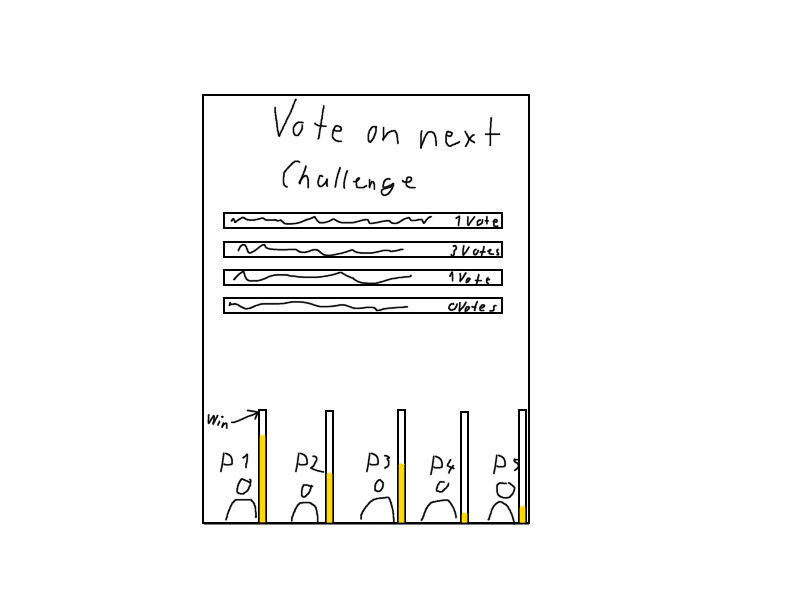 Vote on next
Challenge
1 Vote
3 Votes
1 Vote
0Votes
Win
P1 P2 P3 P4 P5